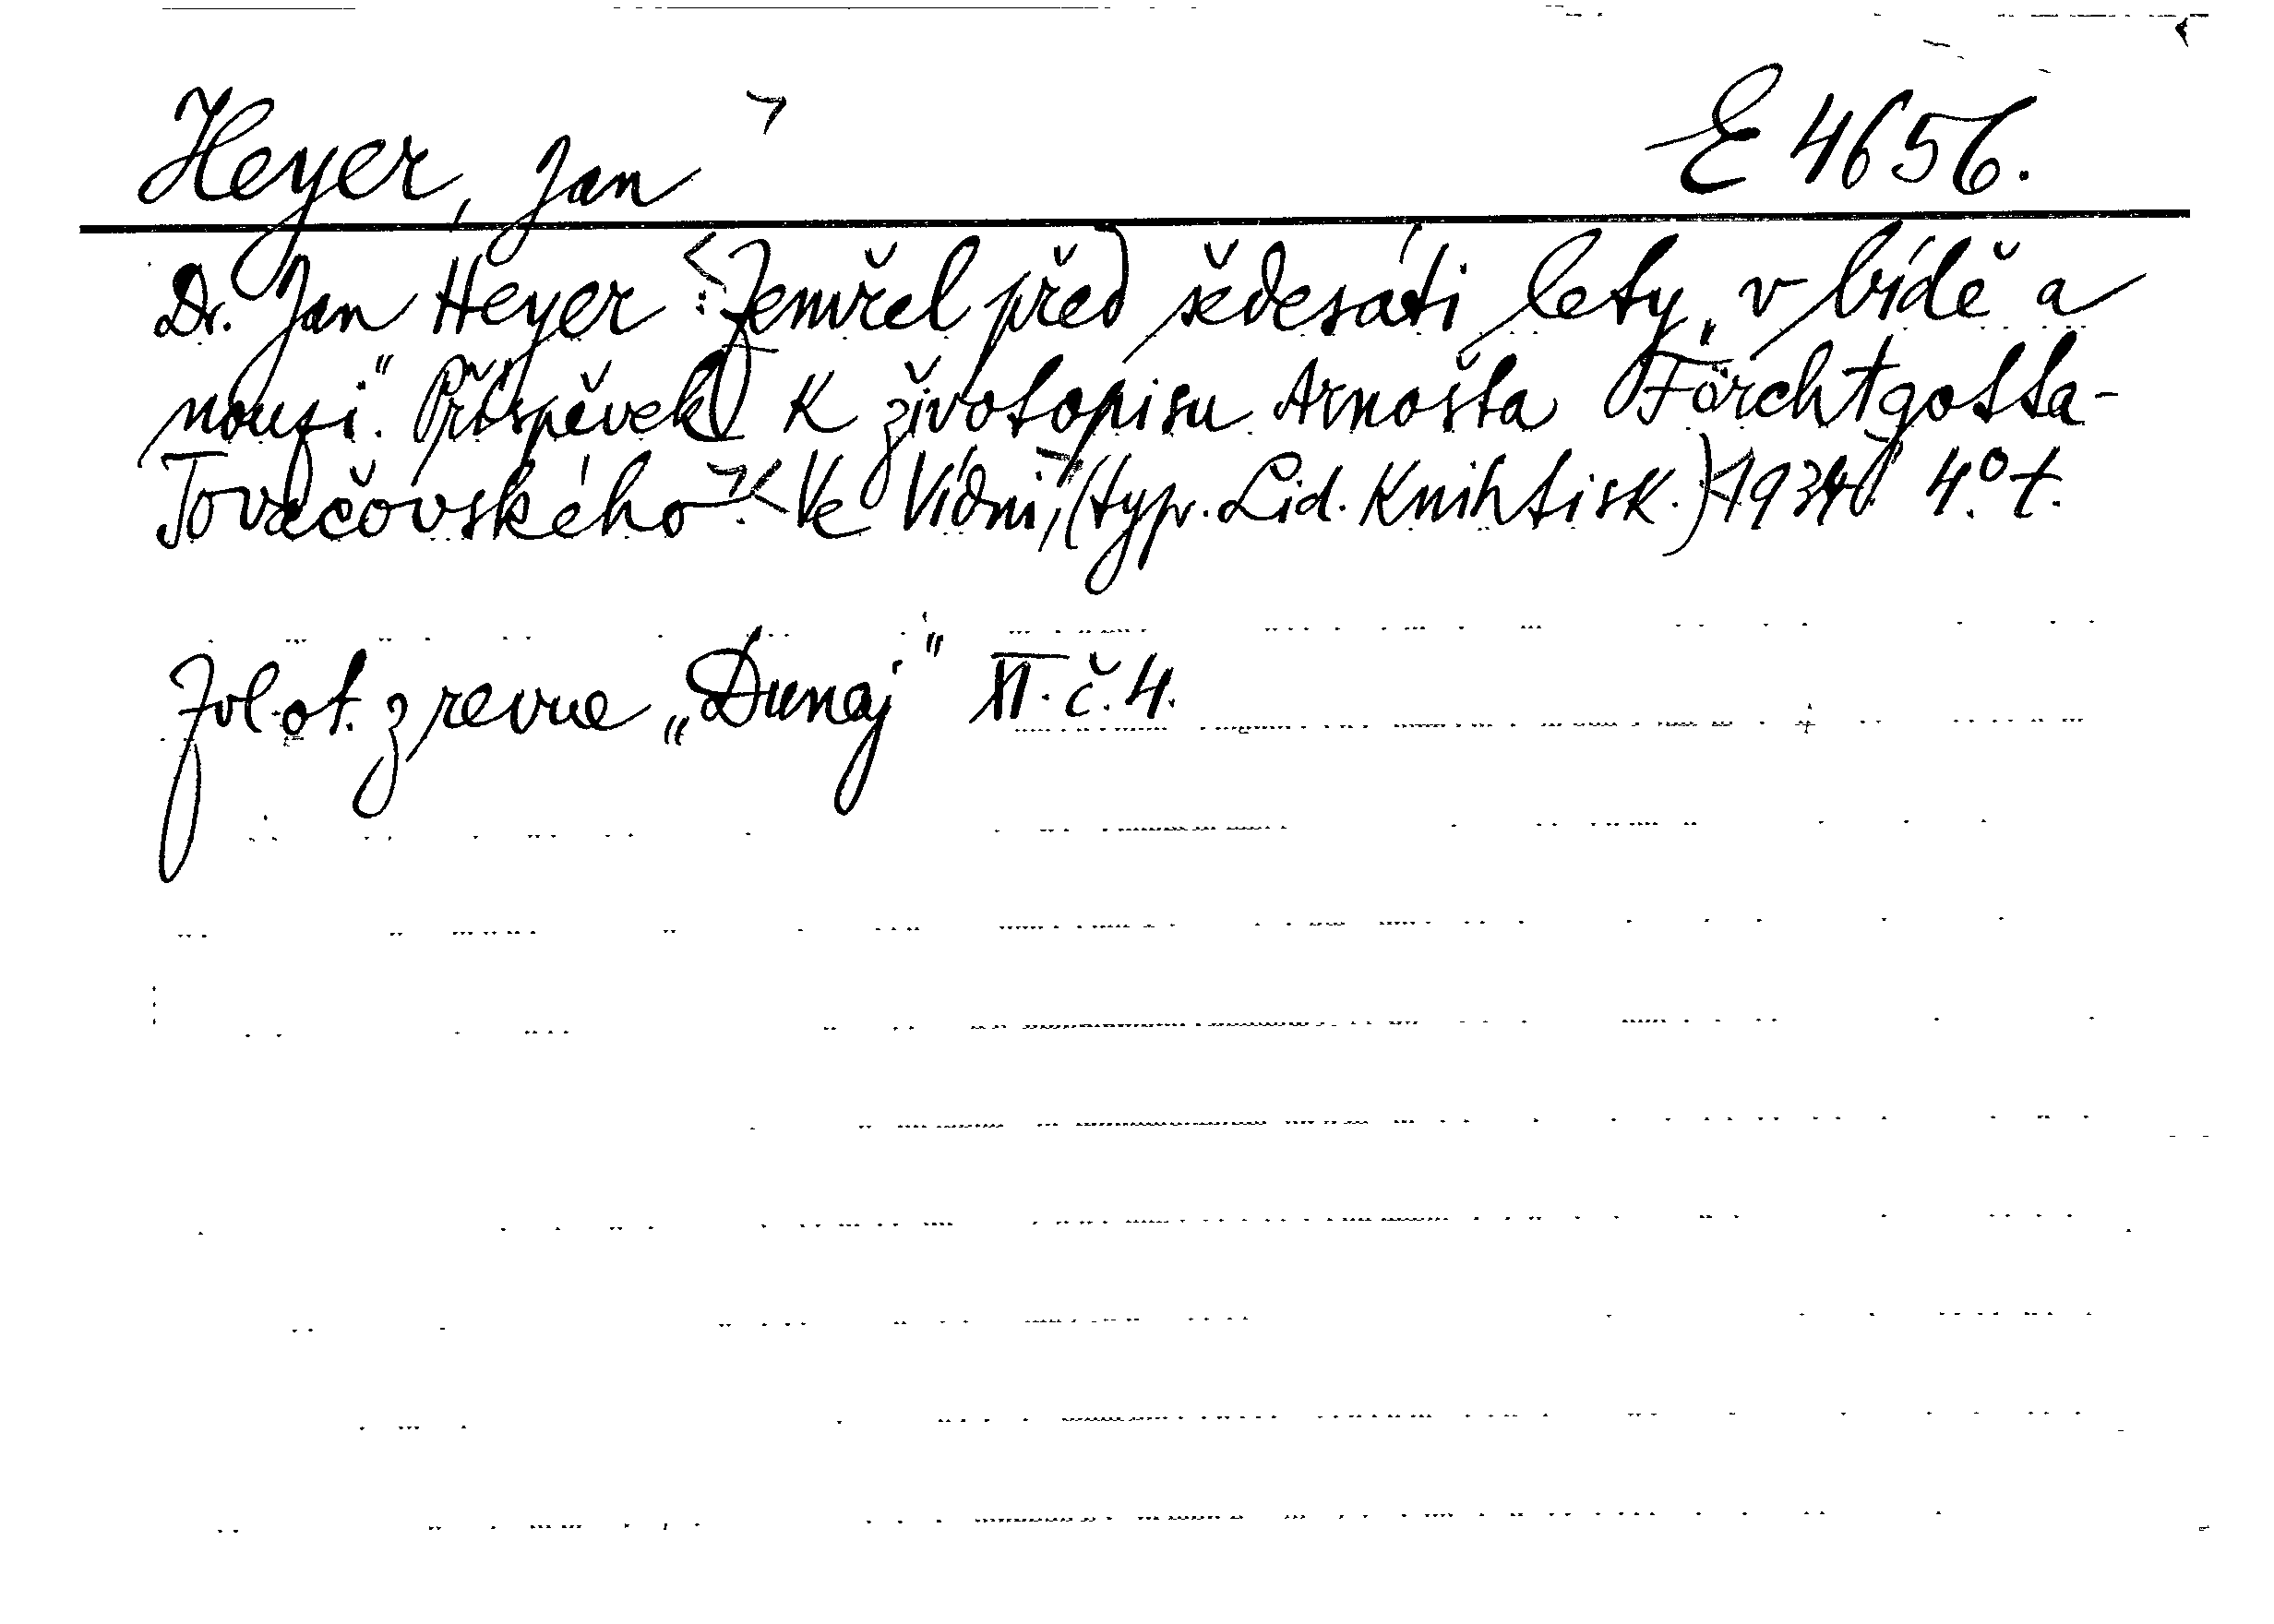 Heyer, Jan > E 4656.
Dr. Jan Heyer <: Zemřel před šedesáti lety „v bídě a
nouzi". Příspěvek k životopisu Arnošta Förchtgotta-
Tovačovského.>< Ve Vídni, (typ. Lid. Knihtisk.) 1934. 4.° t.
Zvl. ot. z revue „Dunaj" XI. č. 4.